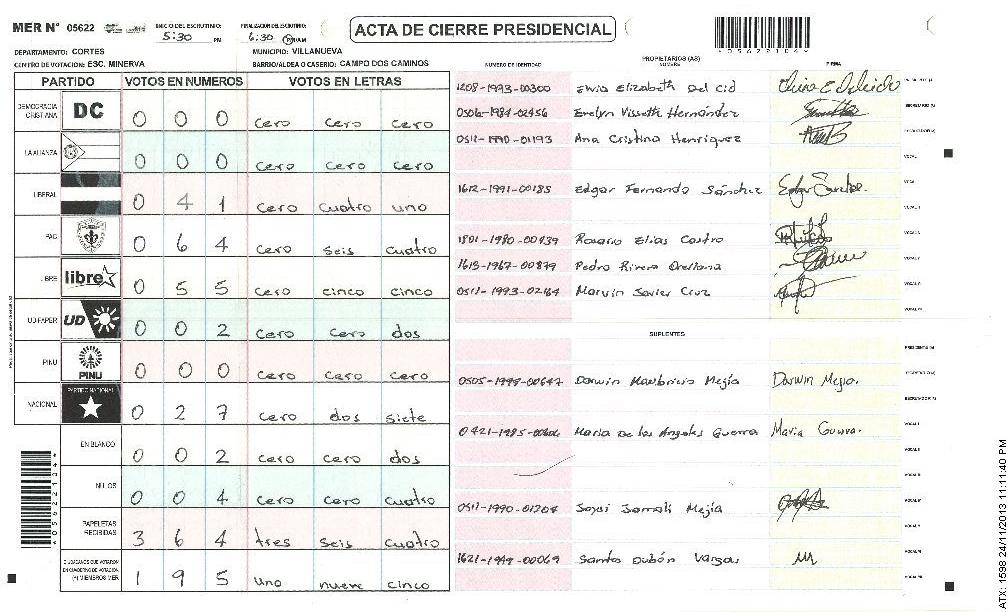 MER Nº 05622
INICIO DEL ESCRUTINIO: 5:30 PM
FINALIZACION DEL ESCRUTINIO: 6:30 PM/AM
ACTA DE CIERRE PRESIDENCIAL
DEPARTAMENTO: CORTES MUNICIPIO: VILLANUEVA
CENTRO DE VOTACION: ESC. MINERVA BARRIO/ALDEA O CASERIO: CAMPO DOS CAMINOS
PARTIDO VOTOS EN NUMEROS VOTOS EN LETRAS
DEMOCRACIA CRISTIANA DC 0 0 0 cero cero cero
LA ALIANZA 0 0 0 cero cero cero
LIBERAL 0 4 1 cero cuatro uno
PAC 0 6 4 cero seis cuatro
LIBRE libre 0 5 5 cero cinco cinco
UD-FAPER UD 0 0 2 cero cero dos
PINU PINU 0 0 0 cero cero cero
NACIONAL PARTIDO NACIONAL 0 2 7 cero dos siete
EN BLANCO 0 0 2 cero cero dos
NULOS 0 0 4 cero cero cuatro
PAPELETAS RECIBIDAS 3 6 4 tres seis cuatro
CIUDADANOS QUE VOTARON EN CUADERNO DE VOTACION (+) MIEMBROS MER 1 9 5 uno nueve cinco
PROPIETARIOS (AS)
NUMERO DE IDENTIDAD NOMBRE FIRMA
1208-1993-00300 Elvia Elizabeth Del Cid
0506-1984-02456 Evelyn Visseth Hernández
0511-1990-01193 Ana Cristina Henriquez
1612-1991-00185 Edgar Fernando Sánchez
1801-1980-00439 Rosario Elias Castro
1613-1967-00879 Pedro Rivera Orellana
0511-1993-02164 Marvin Javier Cruz
SUPLENTES
Darwin Mauricio Mejía Darwin Mejia.
Maria De los Angeles Guerra Maria Guerra.
0511-1990-01204 Mejía
1621-1949-00069 Santos Dubón Vargas
ATX: 1598 24/11/2013 11:11:40 PM